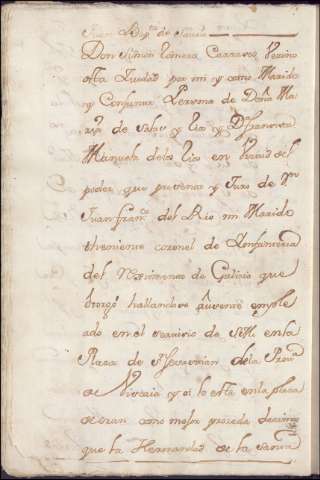 Juan Bap.ta de
Don Simon Romera Carrasco Vezino
desta Ziudad por mi y como Marido
y Conjunta Persona de Doña Ma
ria de Salas y Rio y D.ª Fran.ca
Manuela de los Rios en virtud del
poder, que presenta y Juro de Dn
Juan fran.co del Rio mi Marido
theniente coronel de Ynfanteria
del Reximiento de Galicia que
otorgó hallandose Aussente emple
ado en el servicio de S.M. en la
Plaza de Sn Sevastian de la Prov.a
de Viscaia y oi lo está en la plaza
de oran como mejor proceda decimos
que la Hermandad de la Santa